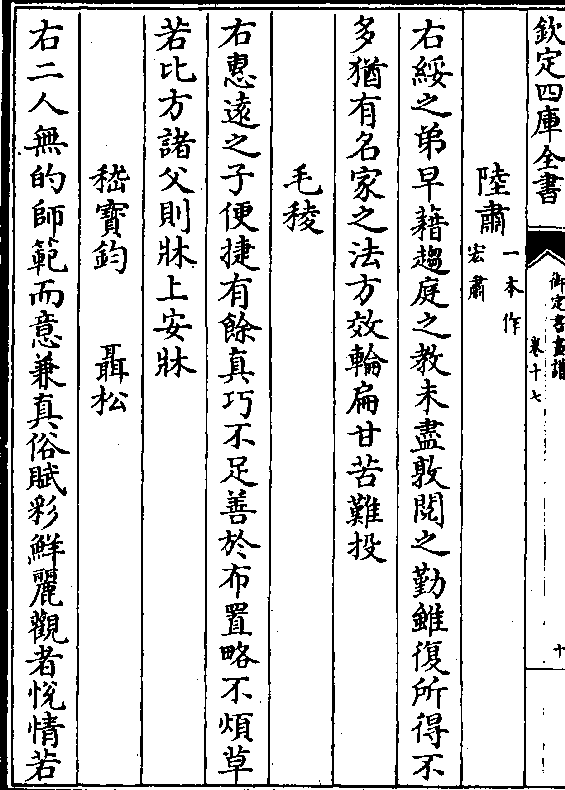 欽定四庫全書
御定書畫譜
卷十七
十
陸肅一本作宏肅
右綏之弟早藉趨庭之教未盡敦閱之勤雖復所得不
多猶有名家之法方效輪扁甘苦難投
毛稜
右惠遠之子便捷有餘真巧不足善於布置略不煩草
若比方諸父則牀上安牀
嵇寶鈞　聶松
右二人無的師範而意兼真俗賦彩鮮麗觀者悅情若